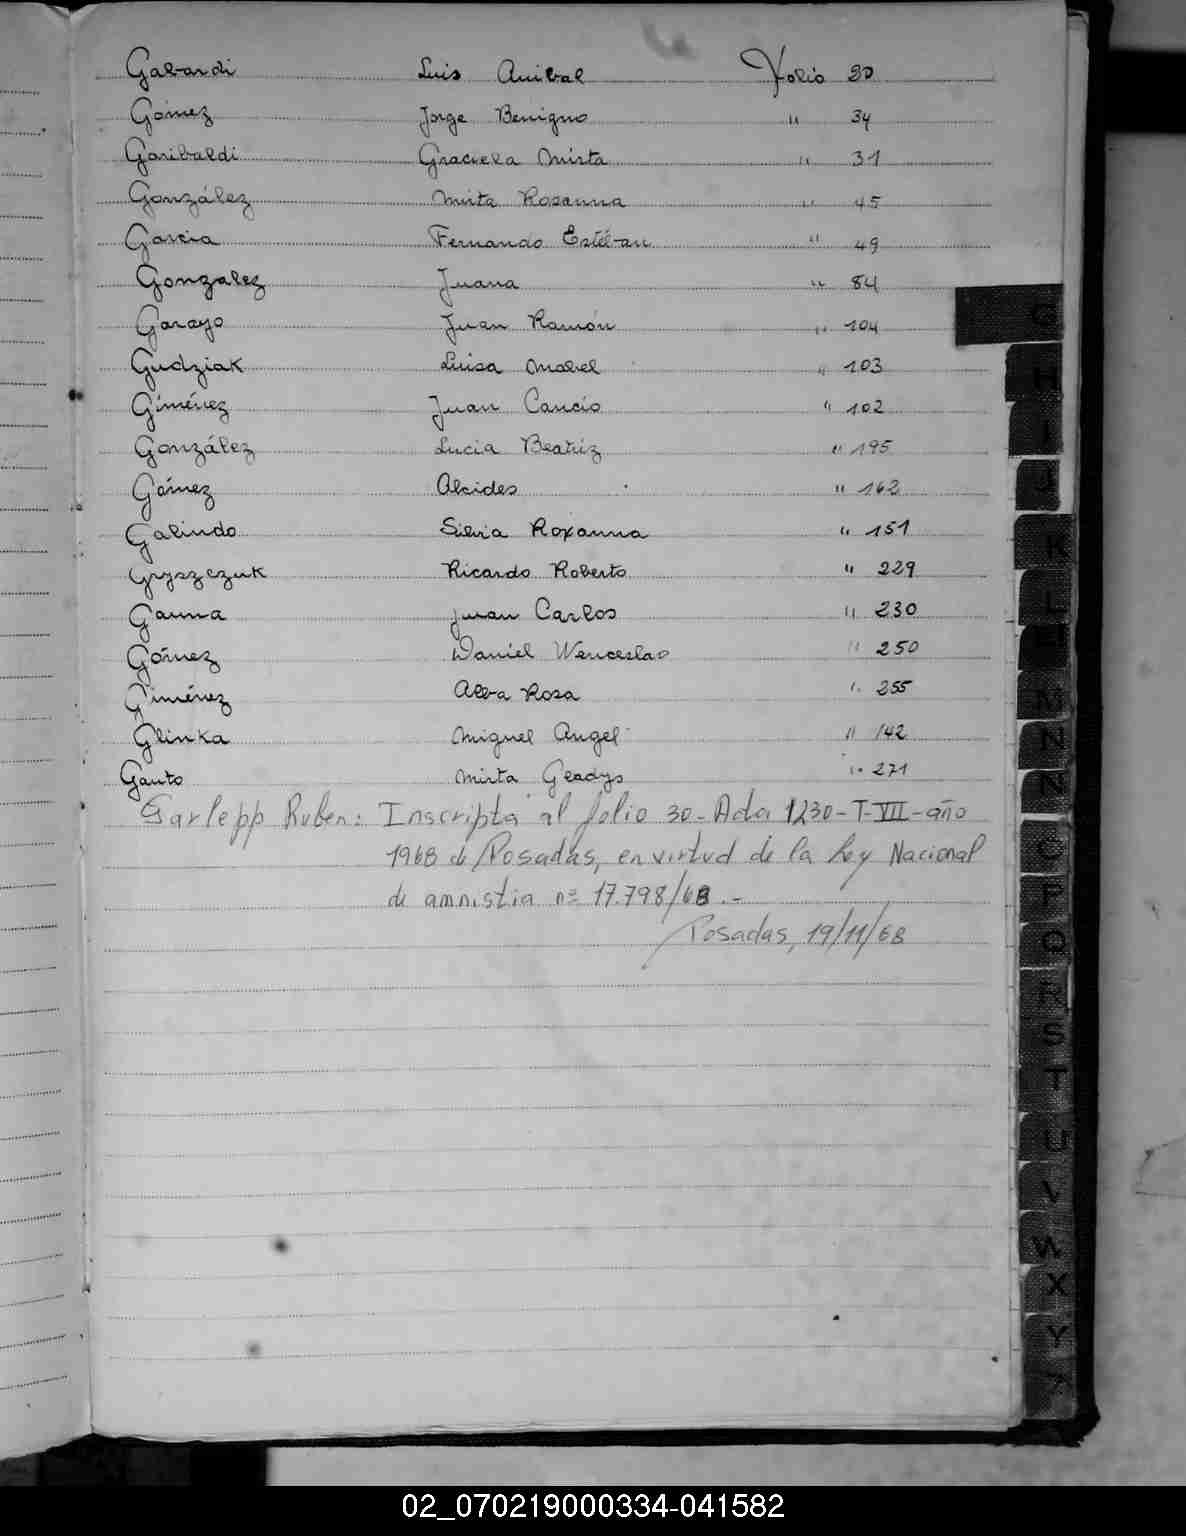 Gabardi Luis Anibal Folio 20
Gómez Jorge Benigno " 34
Garibaldi Graciela Mirta " 31
González Mirta Rosanna " 45
Garcia Fernando Estéban " 49
Gonzalez Juana " 84
Garayo Juan Ramón " 104
Gudziak Luisa Mabel " 103
Giménez Juan Cancio " 102
González Lucia Beatriz " 195
Gómez Alcides " 162
Galindo Silvia Roxanna " 151
Gryszczuk Ricardo Roberto " 229
Gauna Juan Carlos " 230
Gómez Daniel Wenceslao " 250
Giménez Alba Rosa " 255
Glinka Miguel Angel " 142
Gauto Mirta Gladys " 271
Garlepp Ruben: Inscripta al folio 30-Acta 1230-T-VII-año
1968 de Posadas, en virtud de la Ley Nacional
de amnistia nº 17.798/68.-
Posadas, 19/11/68
G
H
I
J
K
L
M
N
Ñ
O
P
Q
R
S
T
U
V
W
X
Y
Z
02_070219000334-041582